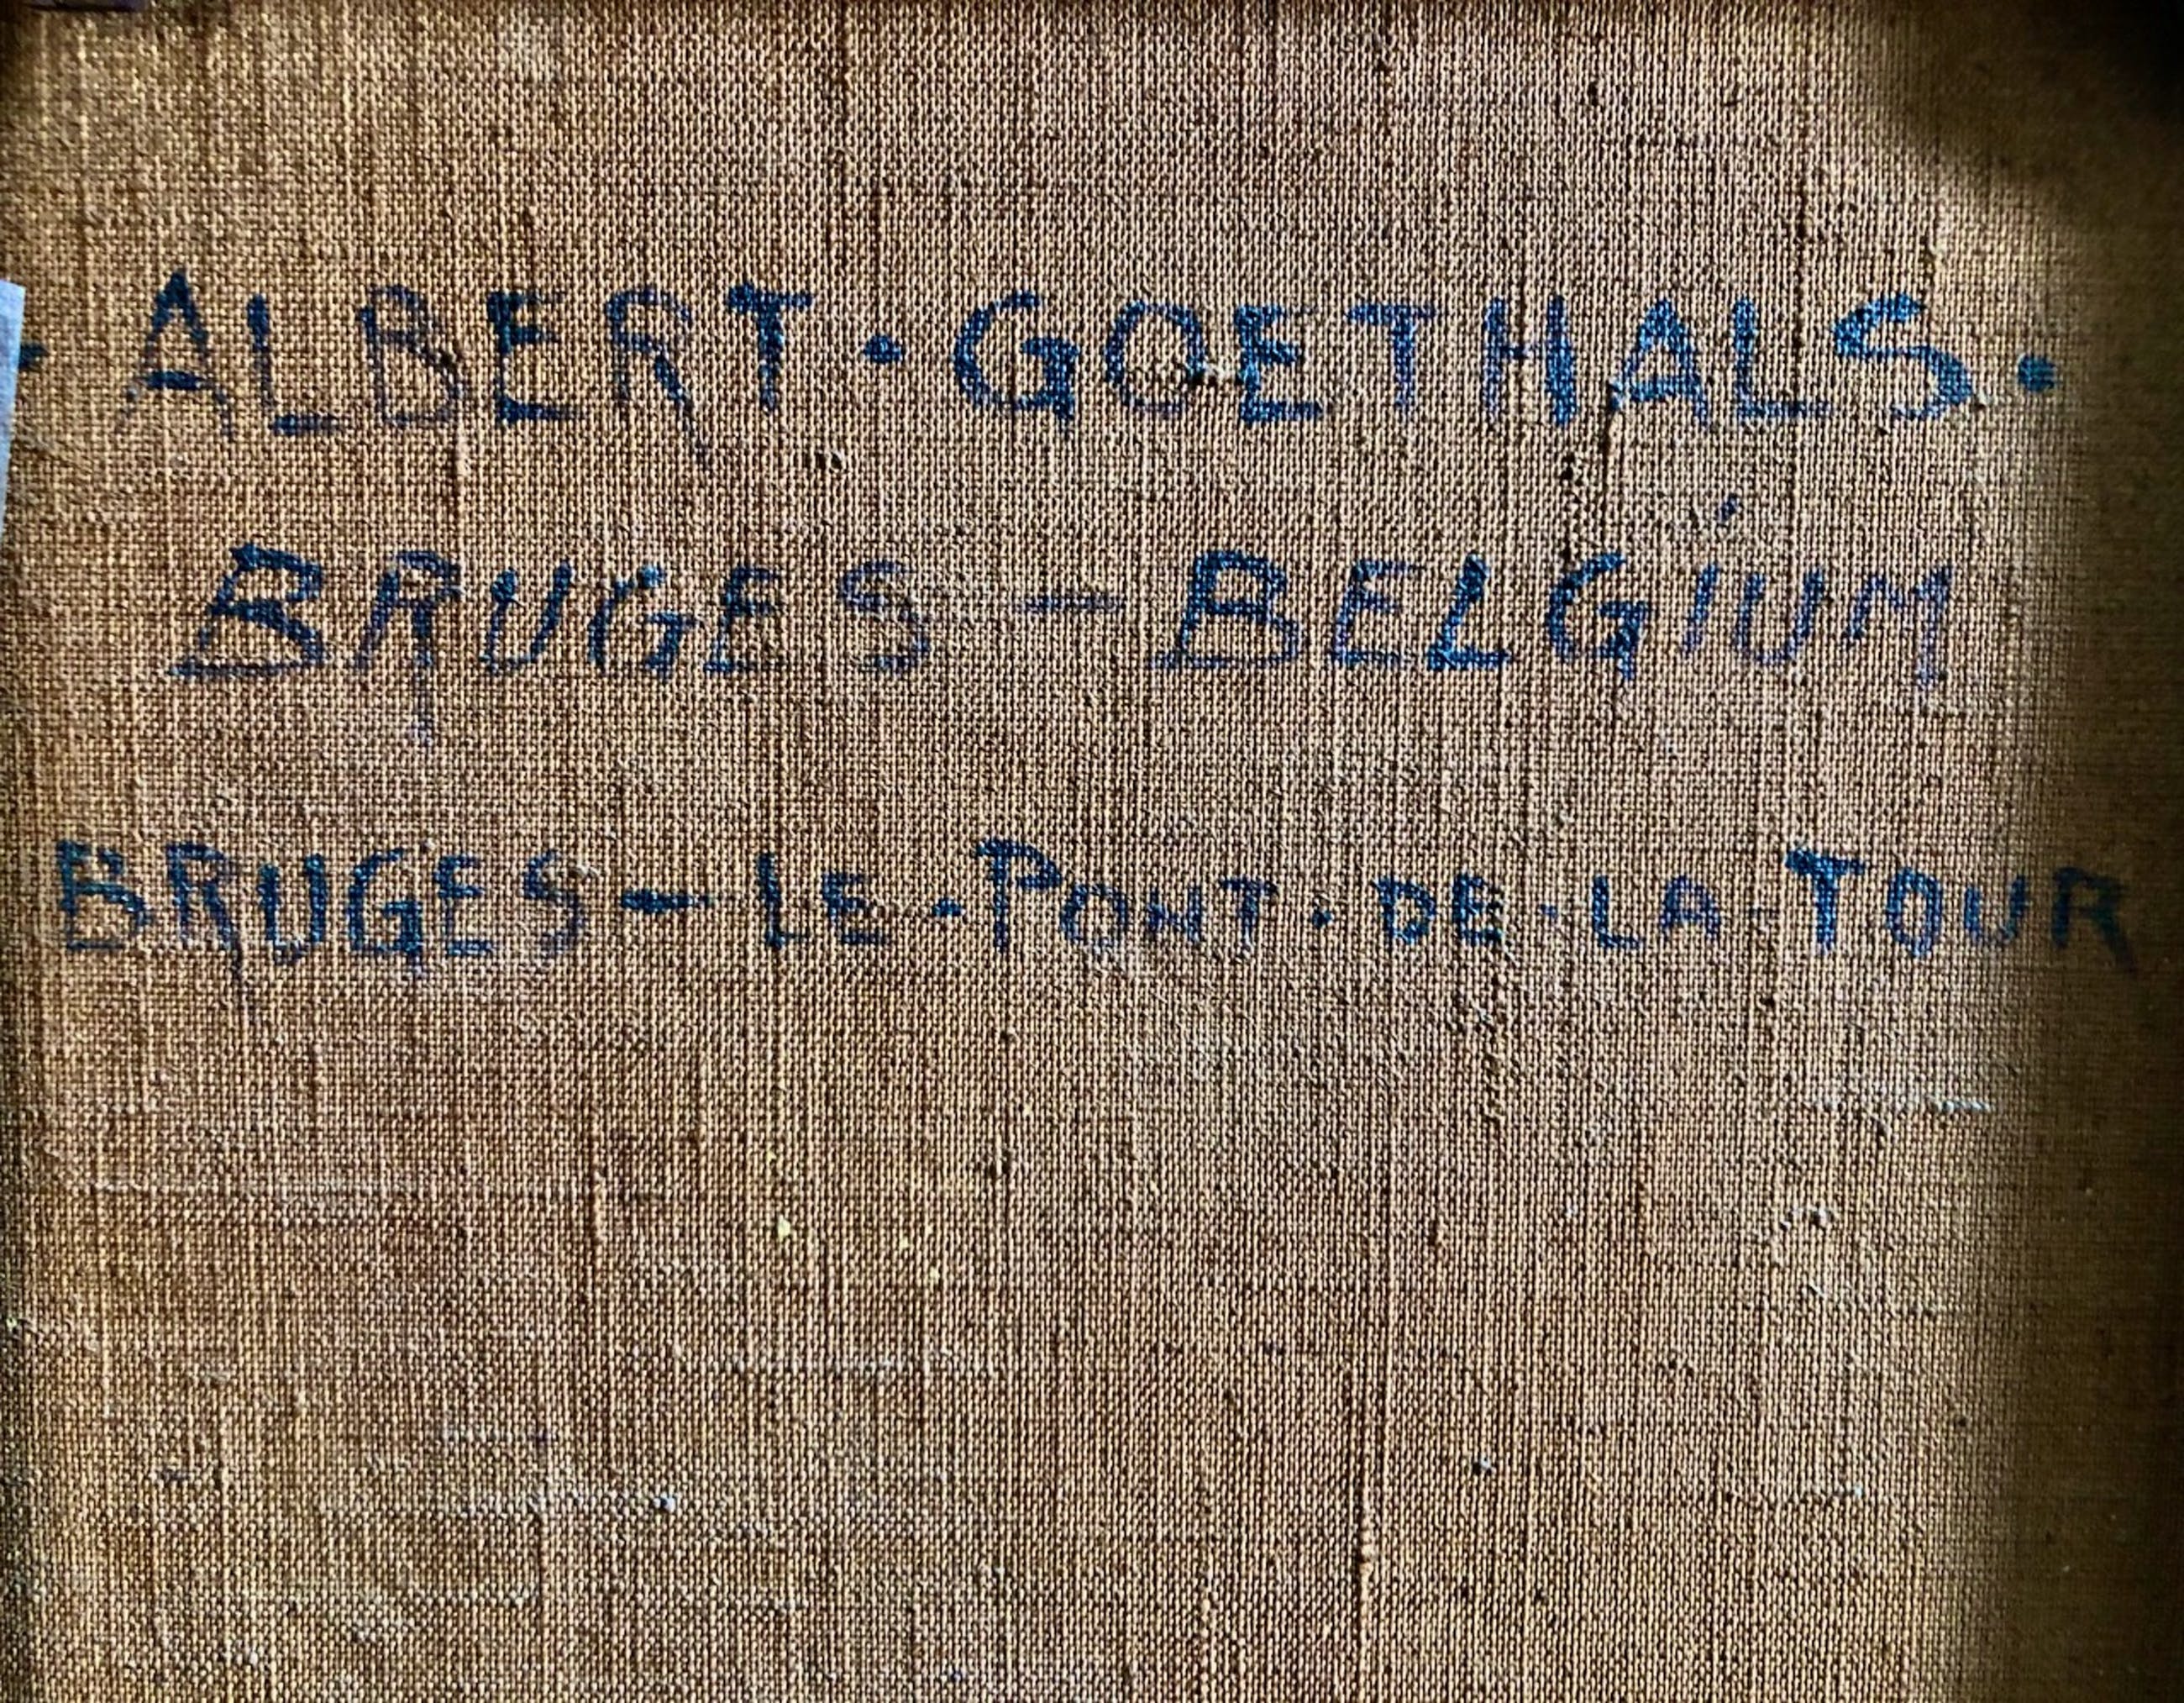 · ALBERT · GOETHALS ·
BRUGES — BELGiUM
BRUGES — LE · PONT · DE · LA TOUR